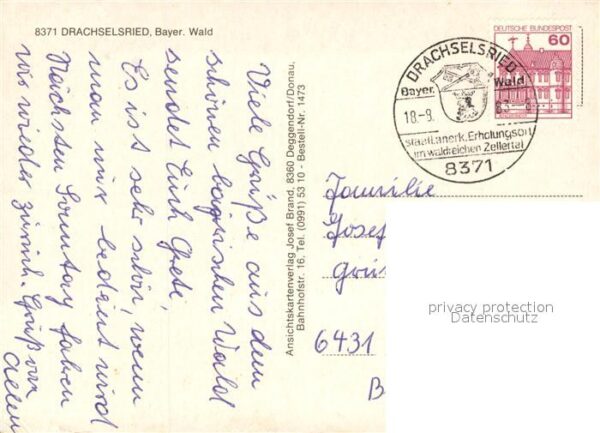 8371 DRACHSELSRIED, Bayer. Wald
Viele Grüße aus dem
schönen bayrischen Wald
sendet Euch Greti,
Es ist sehr schön, wenn
man mir bedient wird
Nächsten Sonntag fahren
wir wieder zurück. Gruß von
allen
Ansichtskartenverlag Josef Brand, 8360 Deggendorf/Donau,
Bahnhofstr. 16, Tel. (0991) 53 10 - Bestell-Nr. 1473
DEUTSCHE BUNDESPOST
60
DRACHSELSRIED
Bayer. Wald
18.-9. 83.-8
staatl. anerk. Erholungsort
im waldreichen Zellertal
8371
Familie
Josef
6431
B
privacy protection
Datenschutz